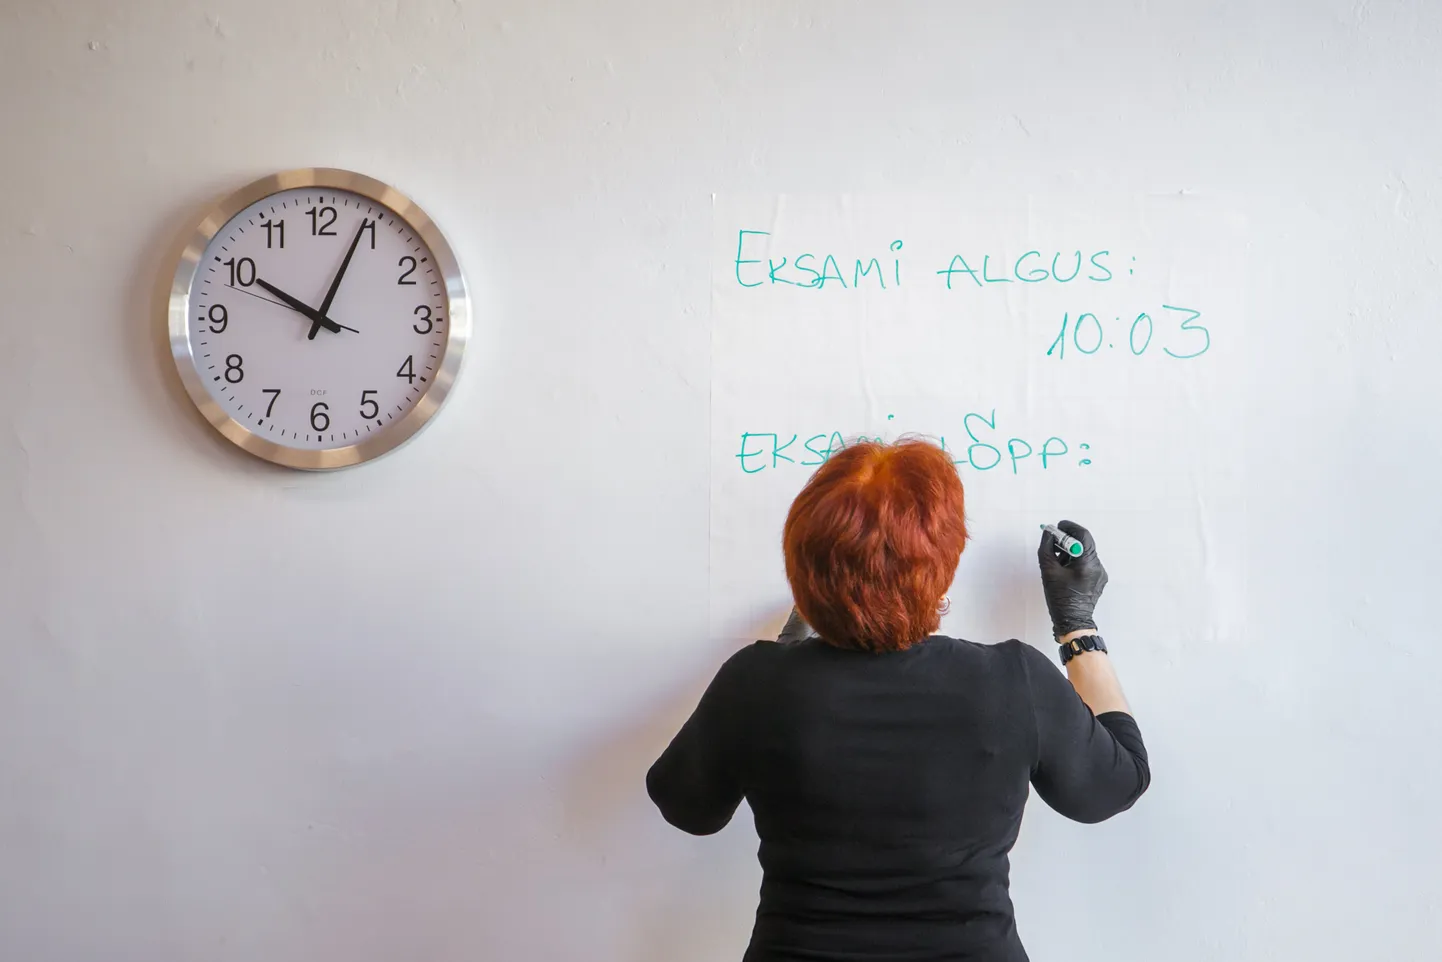 12
11
1
10
2
9
3
8
4
7
5
6
DCF
EKSAMI ALGUS:
10:03
EKSAMI LÕPP: